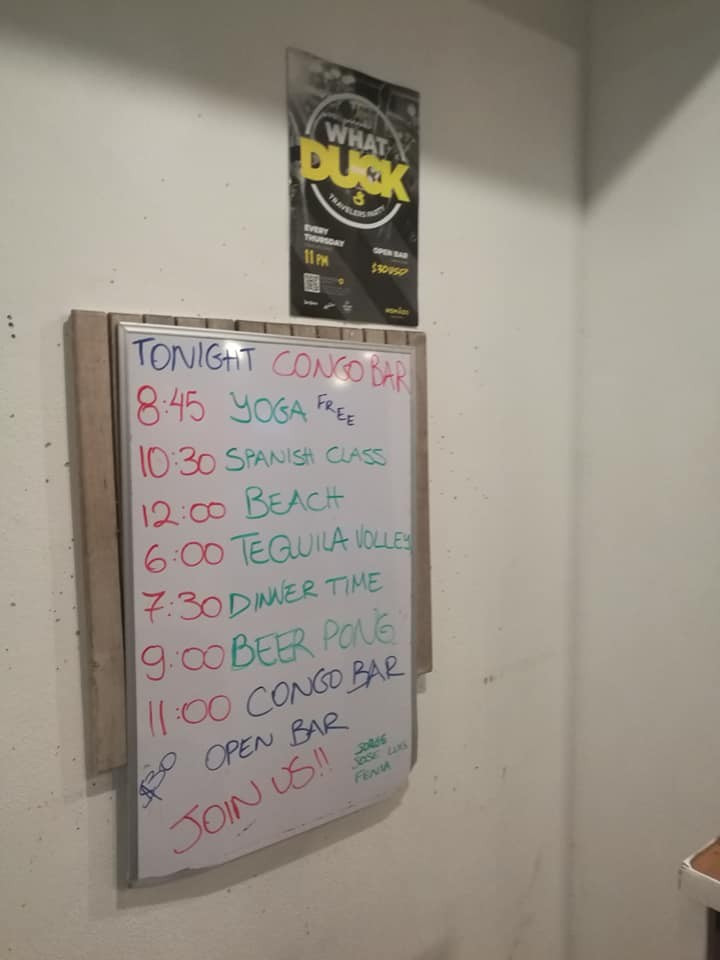 WHAT
DUCK
TRAVELERS PARTY
EVERY
THURSDAY
11 PM
OPEN BAR
$30USD
TONIGHT CONGO BAR
8:45 YOGA FREE
10:30 SPANISH CLASS
12:00 BEACH
6:00 TEQUILA VOLLEY
7:30 DINNER TIME
9:00 BEER PONG
11:00 CONGO BAR
$30 OPEN BAR
JOIN US!!
JORGE
JOSE LUIS